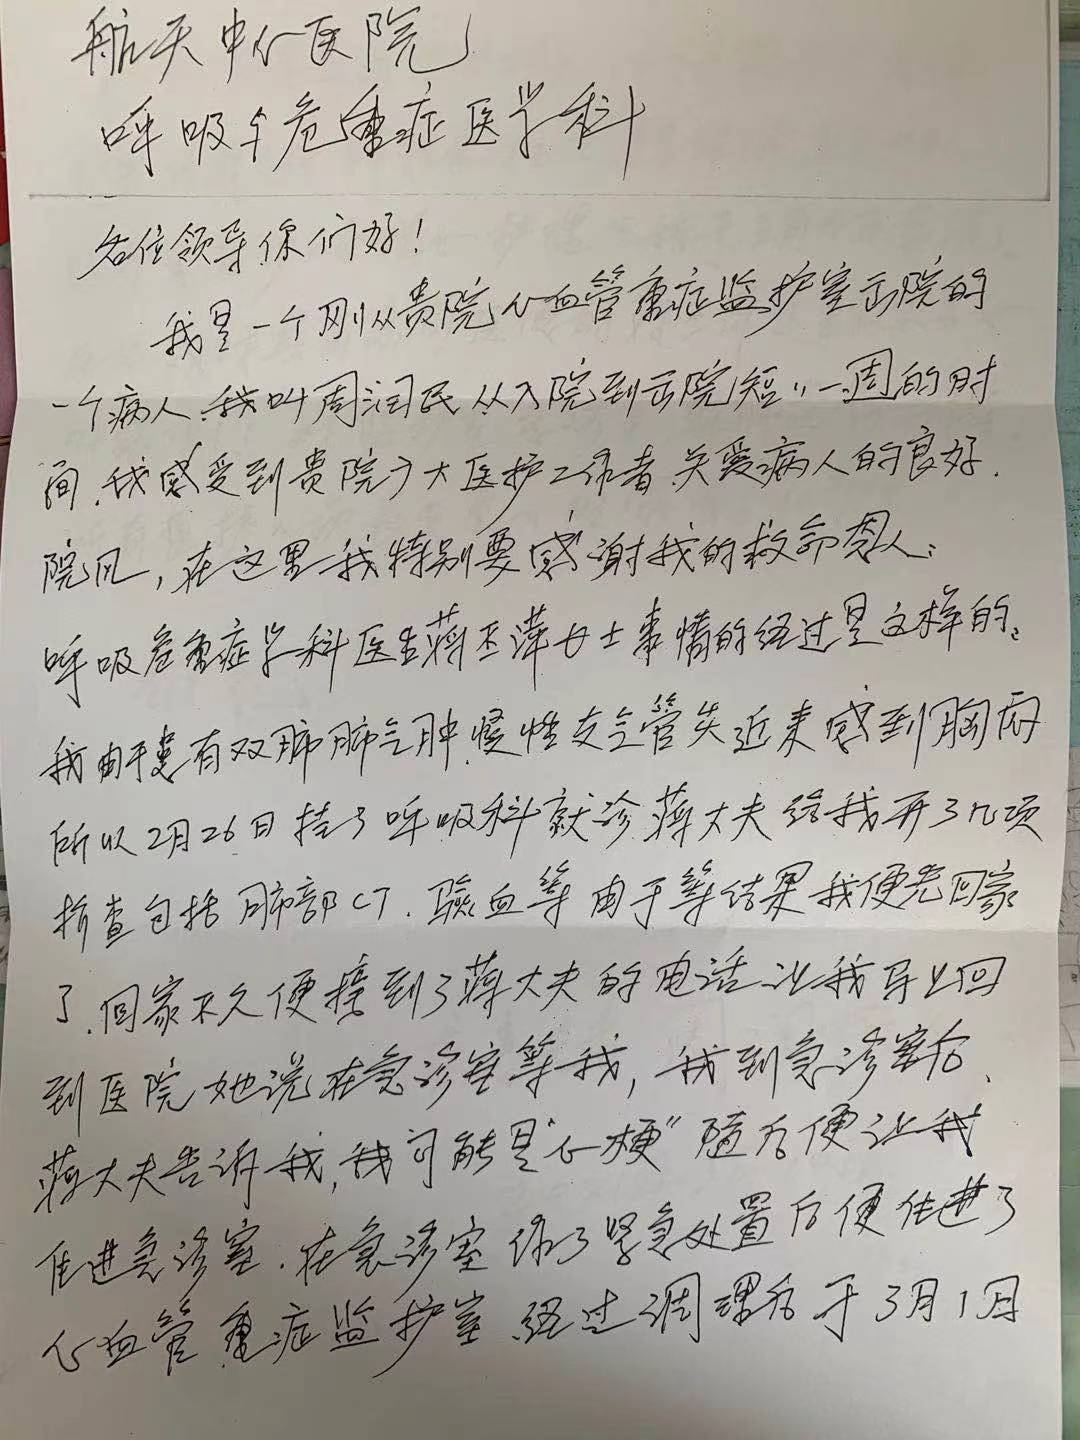 航天中心医院
呼吸与危重症医学科
各位领导你们好！
我是一个刚从贵院心血管重症监护室出院的
一个病人.我叫周润民从入院到出院短〃一周的时
间.我感受到贵院广大医护工作者关爱病人的良好.
院风，在这里我特别要感谢我的救命恩人：
呼吸危重症学科医生蒋丕萍女士事情的经过是这样的：
我由于患有双肺肺气肿.慢性支气管炎近来感到胸闷
所以2月26日挂了呼吸科就诊蒋大夫给我开了几项
检查包括肺部CT.验血等由于等结果我便先回家
了.回家不久便接到了蒋大夫的电话让我马上回
到医院她说在急诊室等我，我到急诊室后、
蒋大夫告诉我，我可能是“心梗”随后便让我
住进急诊室.在急诊室做了紧急处置后便住进了
心血管重症监护室经过调理后于3月1日